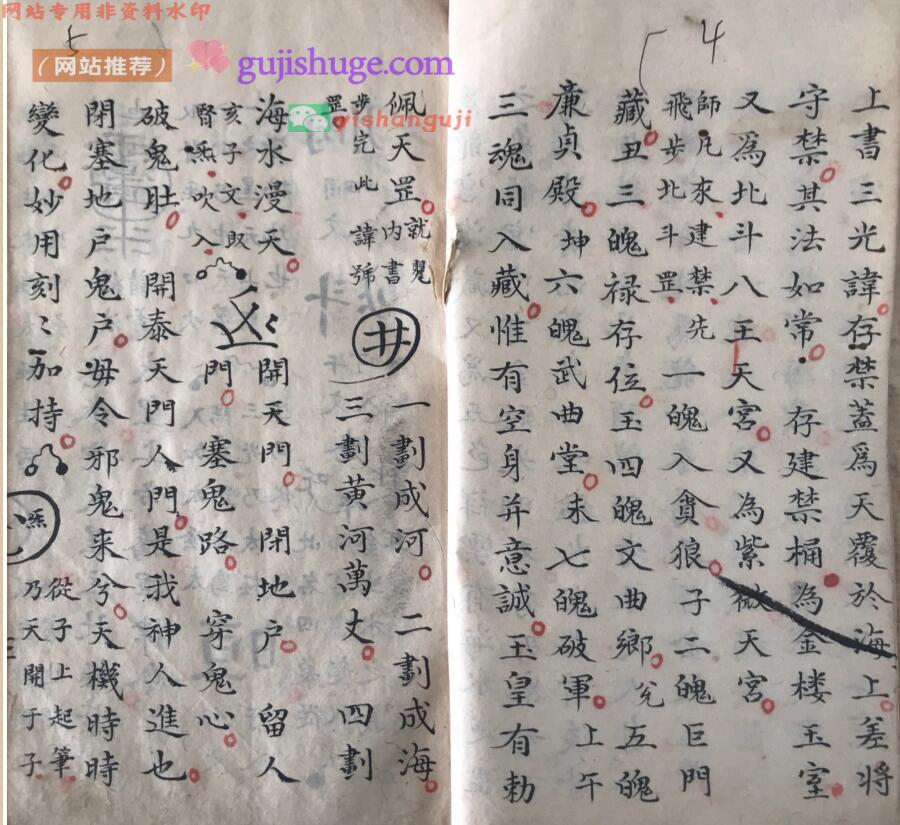 网站专用非资料水印
(网站推荐)
gujishuge.com
yishanguji
4
上書三光諱存禁蓋爲天覆於海上差将
守禁其法如常存建禁桶為金楼玉室
又爲北斗八王天宮又為紫微天宮
師凡來建禁先
飛步北斗罡
一魄入貪狼子二魄巨門
藏丑三魄禄存位玉四魄文曲鄉兊五魄
廉貞殿坤六魄武曲堂未七魄破軍上午
三魂同入藏惟有空身并意誠玉皇有勅
5
佩天罡
步完此諱號
罡
一劃成河二劃成海
三劃黄河萬丈四劃
海水漫天
開天門閉地戶留人
門塞鬼路穿鬼心
亥子文
腎炁吹入
破鬼肚開泰天門人門是我神人進也
閉塞地戶鬼戶毋令邪鬼来兮天機時時
變化妙用刻〻加持
炁
從子上起筆
乃天開于子